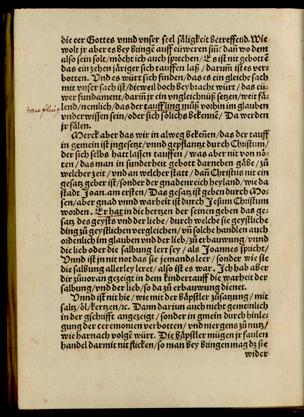 die eer Gottes vnnd vnser seel säligkeit betreffend. Wie
wolt jr aber es bey bünge auff euweren siñ: dañ wo dem
also sein solt / möcht ich auch sprechen / Es ist nit gebotten
das ein zehen järiger sich tauffen laß / darumb ist es ver
botten. Vnd es würt sich finden / das es ein gleiche sach
mit vnser sach ist / diewel doch bey bracht würt / das eü-
wer fundament / darum jr ein vngleichnuß setzen / wit fä-
lend / nemlich / das der teuffling müß vorhin im glauben
vnderwissen sein / oder sich sölichs bekennē / Da werden
jr fälen.
Merck aber das wir in alweg bekeñen / das der tauff
in gemein ist jngesetzt / vnnd gepflantzt durch Christum /
der sich selbs hatt lassen tauffen / was aber nit von nö-
ten / das man in sunderheit gebott darneben gäbe / zů
welcher zeit / vnd an welcher statt / dañ Christus nit ein
gesatz geber ist / sonder der gnadenreich heyland / wie da
stadt Joan. am ersten. Das gesatz ist geben durch Mo-
sen / aber gnad vnnd warheit ist durch Jesum Christum
worden. Er hat in die hertzen der seinen geben das ge-
satz des geysts vnd der liebe / durch welche sie geystliche
ding zů geystlichen vergleichen / vñ solche handlen auch
ordenlich im glauben vnd der lieb / zů erbauwung / vnnd
die lieb oder die salbung lert sey / als Joannes spricht /
Vnnd ist jn nit not das sie jemands leer / sonder wie sie
die salbung allerley leret / also ist es war. Ich hab aber
dir zůuoran gezeigt in dem kindertauff die warheit der
salbung / vnd der lieb / so da zů erbauwung dienet.
Vnnd ist nit hie / wie mit der Bäpstler zůsatzung / mit
saltz / öl / kertzen / ꝛc. Dann darum auch nicht gemeinlich
in der gschrifft angezeigt / sonder in gmein durch hinle-
gung der ceremonien verbotten / vnd niergens zů nutz /
wie harnach volgē würt. Die Bäpstler mügen jr faulen
handel darmit nit flicken / so man bey büngen mag dz sie
wider